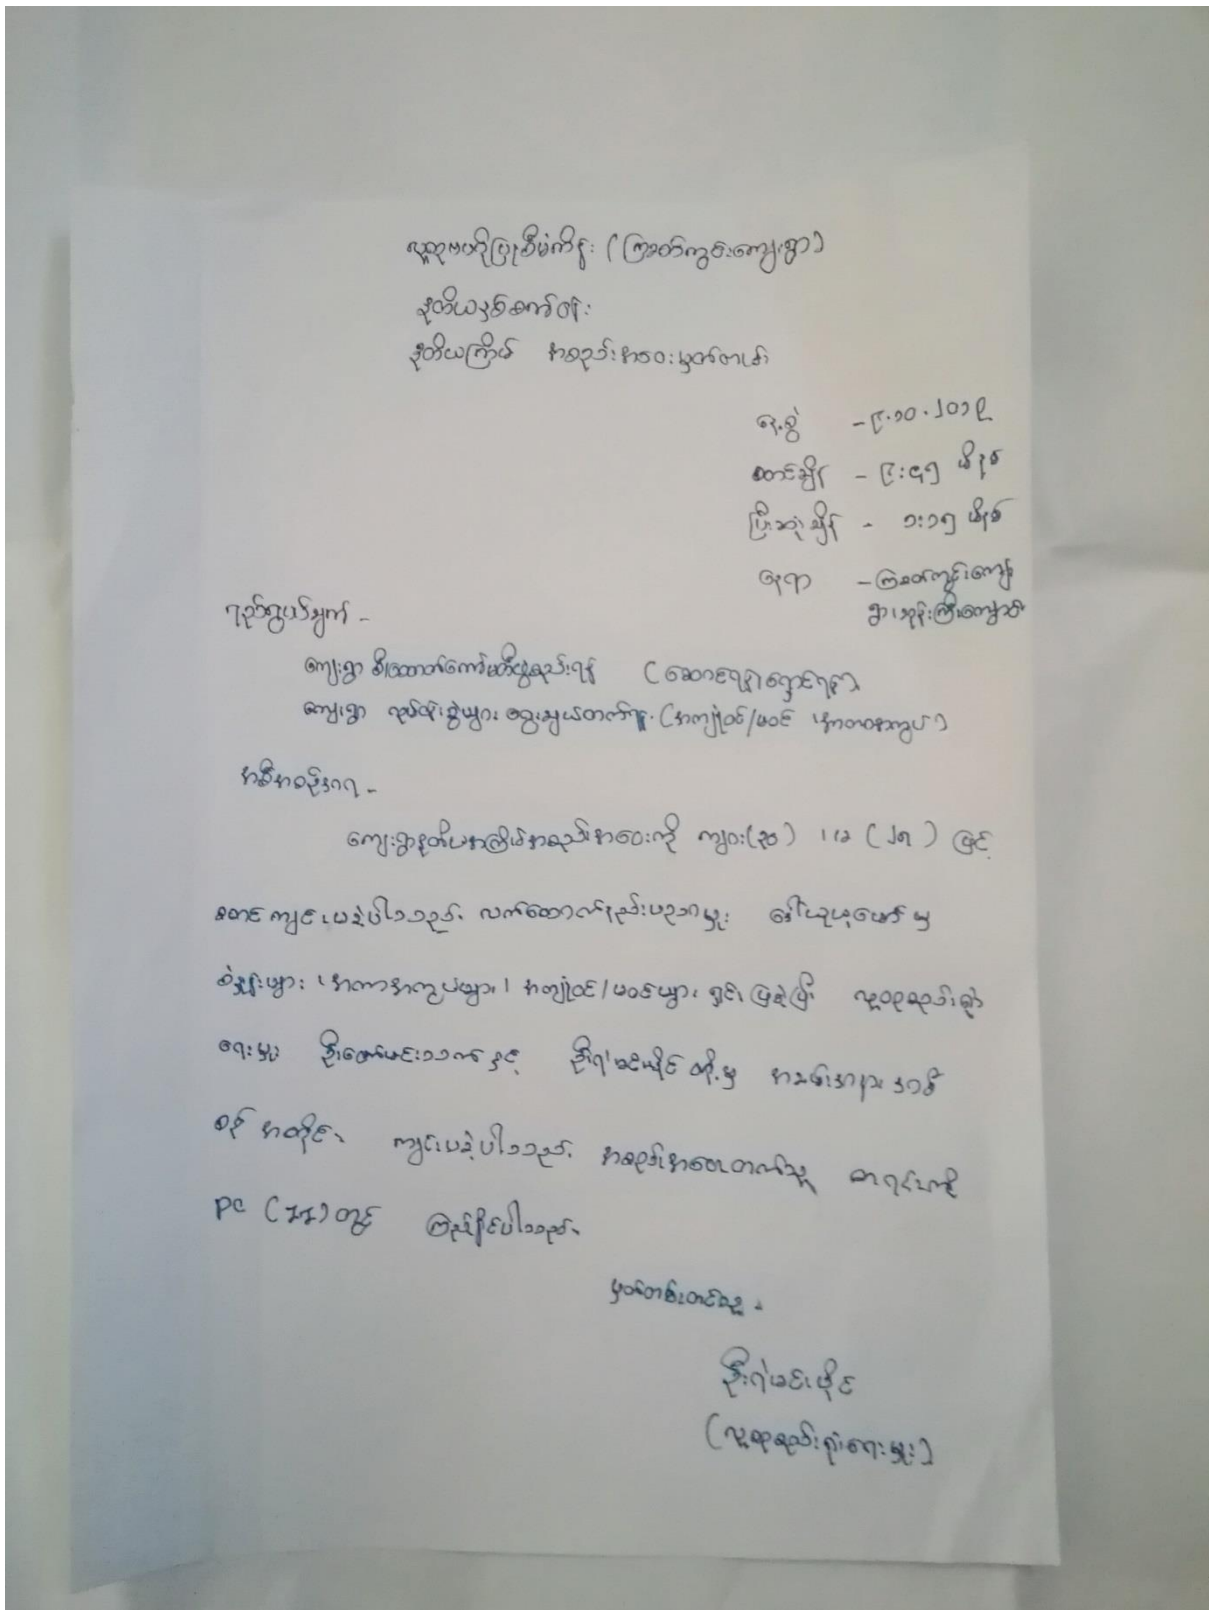 လူထုဗဟိုပြုစီမံကိန်း (ကြခတ်ကွင်းကျေးရွာ)
ဒုတိယနှစ်စက်ဝန်း
ဒုတိယအကြိမ် အစည်းအဝေးမှတ်တမ်း
နေ့စွဲ - ၉.၁၀.၂၀၁၉
စတင်ချိန် - ၉:၄၅ မိနစ်
ပြီးဆုံးချိန် - ၁:၁၅ မိနစ်
နေရာ - ကြခတ်ကွင်းကျေး
ရွာ၊ ဘုန်းကြီးကျောင်း
ရည်ရွယ်ချက် -
ကျေးရွာ စီးထောက်ကော်မတီဖွဲ့စည်းရန် (ဆောင်ရန်၊ ရှောင်ရန်)
ကျေးရွာ လုပ်ငန်းခွဲများ ရွေးချယ်တတ်ရန် (အကျုံးဝင်/မဝင် ၊ အကာအကွယ်)
အစီအစဉ်အရ -
ကျေးရွာဒုတိယအကြိမ်အစည်းအဝေးကို ကျား(၃၀) ၊ မ (၂၅) ဖြင့်
စတင်ကျင်းပခဲ့ပါသည်။ လက်ထောက်နည်းပညာမှူး ဒေါ်ယုယုမော် မှ
စံနှုန်းများ ၊ အကာအကွယ်များ ၊ အကျုံးဝင်/မဝင်များ ရှင်းပြခဲ့ပြီး လူထုစည်းရုံး
ရေးမှူး ဦးဇော်မင်းသက် နှင့် ဦးရဲမင်းပိုင် တို့မှ အခမ်းအနား အစီ
စဉ် အတိုင်း ကျင်းပခဲ့ပါသည်။ အစည်းအဝေးတက်သူ စာရင်းကို
PC တွင် ကြည့်နိုင်ပါသည်။
မှတ်တမ်းတင်သူ -
ဦးရဲမင်းပိုင်
(လူထုစည်းရုံးရေးမှူး)